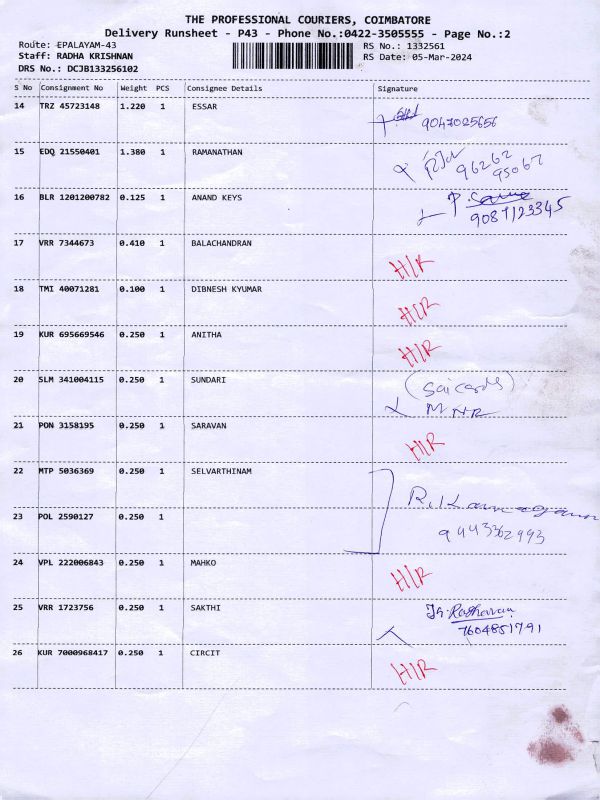 THE PROFESSIONAL COURIERS, COIMBATORE
Delivery Runsheet - P43 - Phone No.:0422-3505555 - Page No.:2
Route: EPALAYAM-43 RS No.: 1332561
Staff: RADHA KRISHNAN RS Date: 05-Mar-2024
DRS No.: DCJB133256102
S No Consignment No Weight PCS Consignee Details Signature
14 TRZ 45723148 1.220 1 ESSAR
9047025656
15 EDQ 21550401 1.380 1 RAMANATHAN
96262
95067
16 BLR 1201200782 0.125 1 ANAND KEYS
9087123345
17 VRR 7344673 0.410 1 BALACHANDRAN
H/R
18 TMI 40071281 0.100 1 DIBNESH KYUMAR
H/R
19 KUR 695669546 0.250 1 ANITHA
H/R
20 SLM 341004115 0.250 1 SUNDARI
(Sai cards)
MNR
21 PON 3158195 0.250 1 SARAVAN
H/R
22 MTP 5036369 0.250 1 SELVARTHINAM
23 POL 2590127 0.250 1
9443362993
24 VPL 222006843 0.250 1 MAHKO
H/R
25 VRR 1723756 0.250 1 SAKTHI
7604851791
26 KUR 7000968417 0.250 1 CIRCIT
H/R